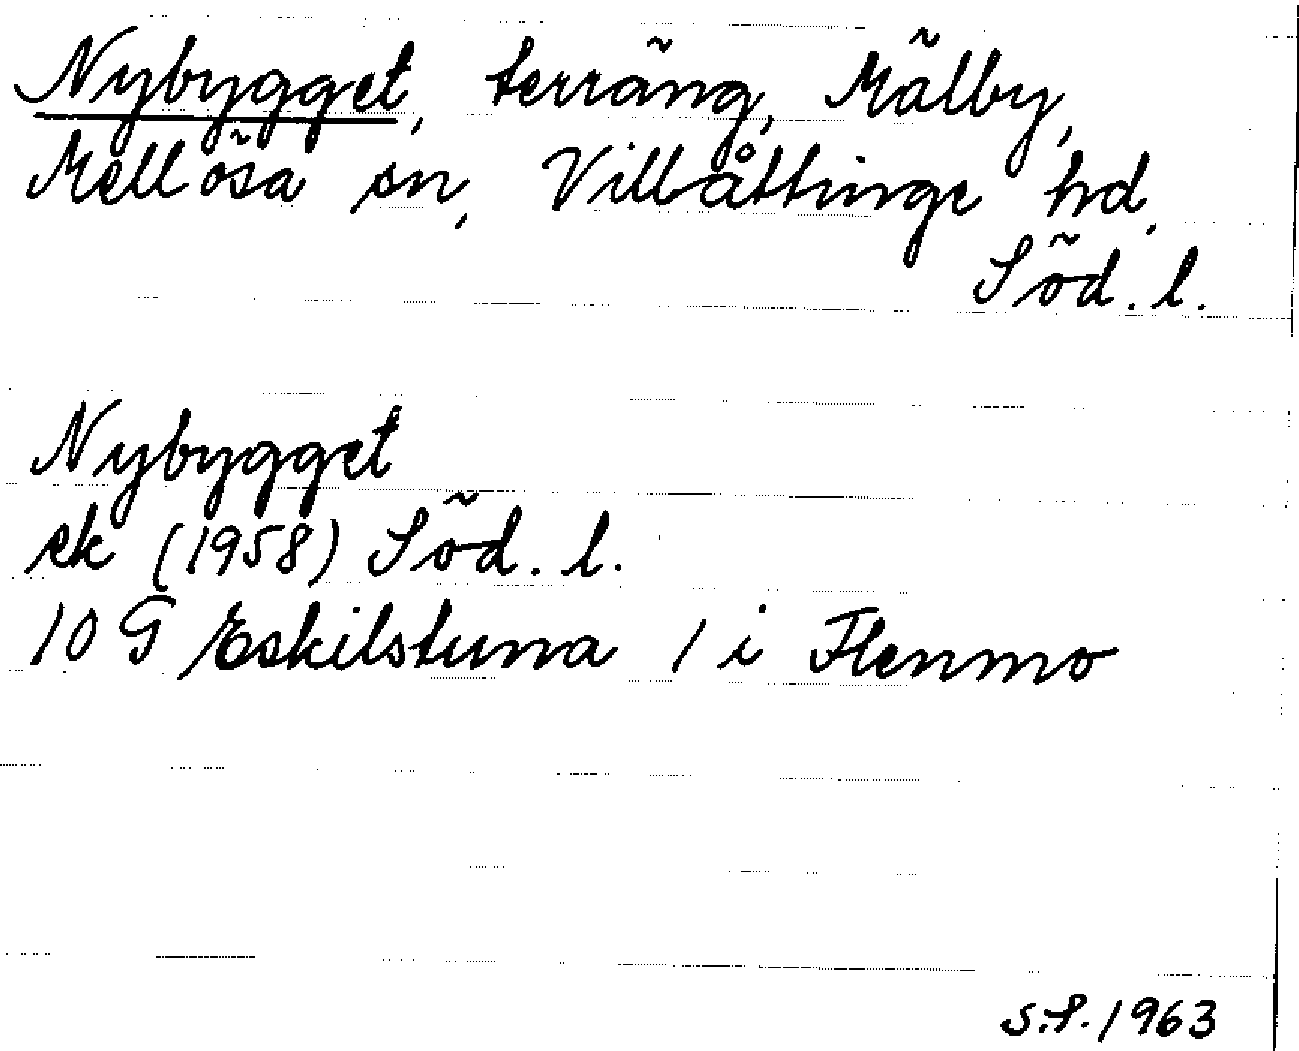 Nybygget, terräng, Mälby,
Mellösa sn, Villåttinge hd,
Söd. l.
Nybygget
ek (1958) Söd. l.
10 G Eskilstuna 1 i Flenmo
S.P. 1963